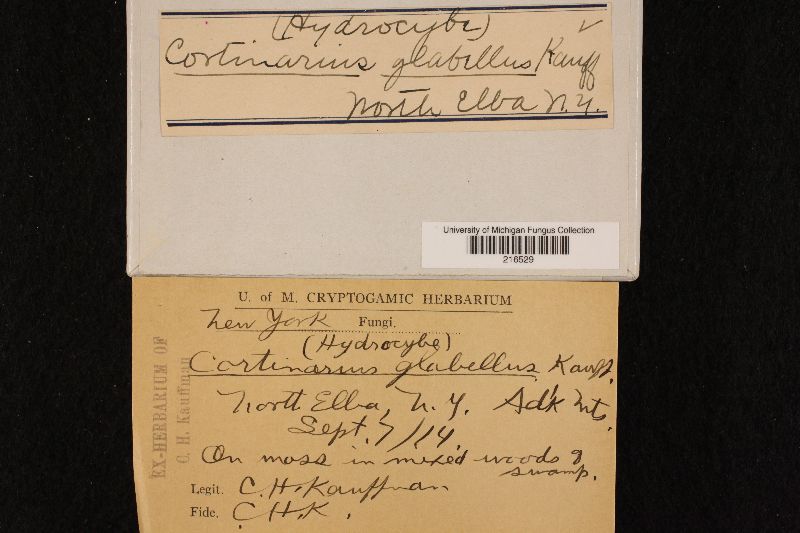 (Hydrocybe)
Cortinarius glabellus Kauff
North Elba N.Y.
University of Michigan Fungus Collection
216529
U. of M. CRYPTOGAMIC HERBARIUM
New York Fungi.
(Hydrocybe)
Cortinarius glabellus Kauff.
North Elba, N.Y. Adk Mts.
Sept. 7/14.
On moss in mixed woods of
swamp.
Legit. C.H. Kauffman
Fide. C.H.K.
EX-HERBARIUM OF
C. H. Kauffman